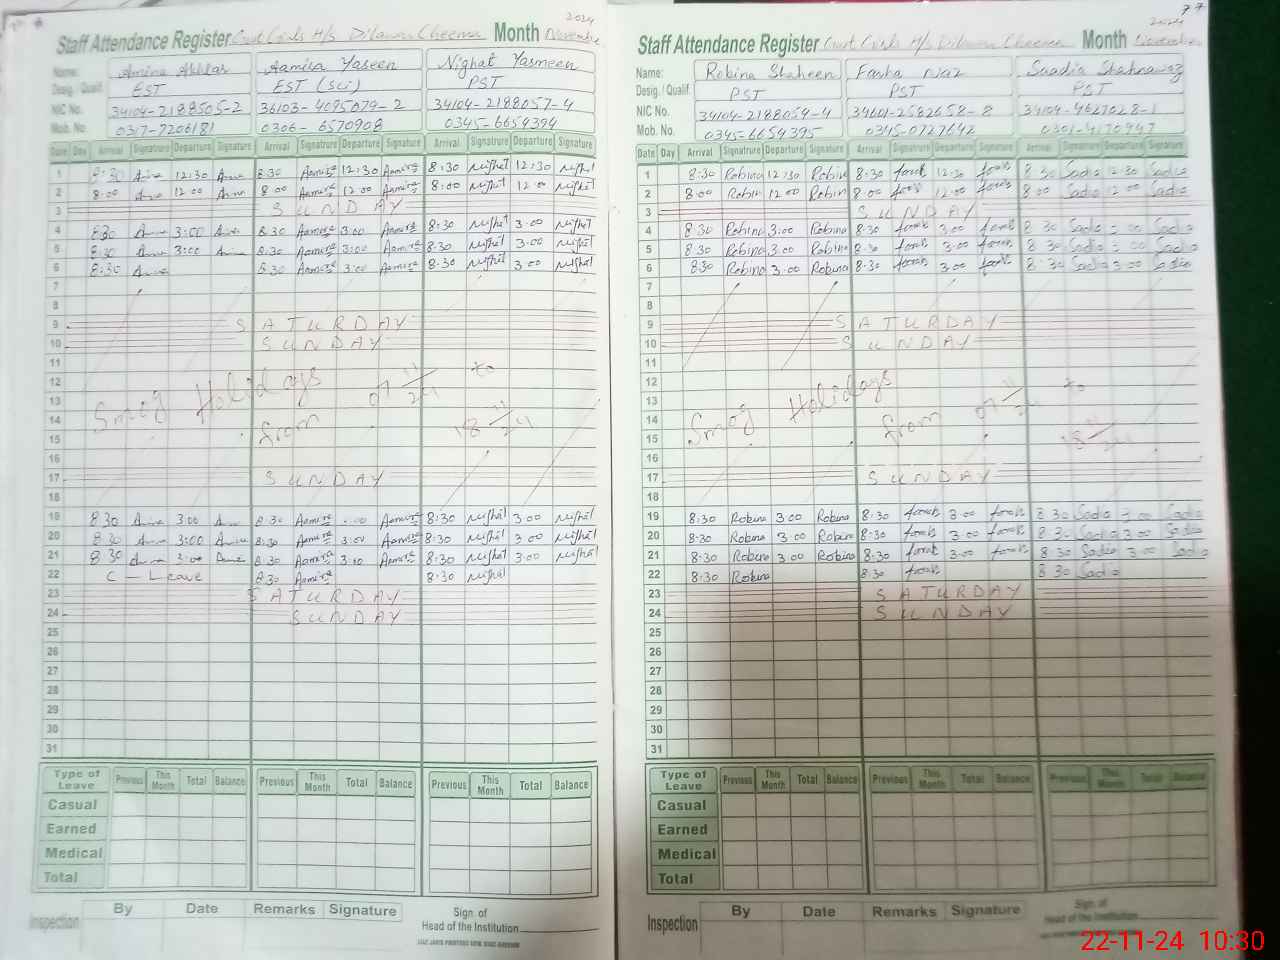 2024
Staff Attendance Register Govt Girls H/s Dilawar Cheema Month November
Name: Amina Akhtar Aamira Yaseen Nighat Yasmeen
Desig./Qualif. EST EST (Sci) PST
NIC No. 34104-2188505-2 36103-4095079-2 34104-2188057-4
Mob. No. 0317-7206181 0306-6570908 0345-6654394
Date Day Arrival Signatrure Departure Signature Arrival Signatrure Departure Signature Arrival Signatrure Departure Signature
1 8:30 12:30 8:30 Aamira 12:30 Aamira 8:30 Nighat 12:30 Nighat
2 8:00 12:00 8:00 Aamira 12:00 Aamira 8:00 Nighat 12:00 Nighat
3 SUNDAY
4 8:30 3:00 8:30 Aamira 3:00 Aamira 8:30 Nighat 3:00 Nighat
5 8:30 3:00 8:30 Aamira 3:00 Aamira 8:30 Nighat 3:00 Nighat
6 8:30 8:30 Aamira 3:00 Aamira 8:30 Nighat 3:00 Nighat
7
8
9 SATURDAY
10 SUNDAY
11
12
13 Smog Holidays 07 11/24 to
14 from 18 11/24
15
16
17 SUNDAY
18
19 8:30 3:00 8:30 Aamira Aamira 8:30 Nighat 3:00 Nighat
20 8:30 3:00 8:30 Aamira 3:00 Aamira 8:30 Nighat 3:00 Nighat
21 8:30 3:00 8:30 Aamira 3:00 Aamira 8:30 Nighat 3:00 Nighat
22 C - Leave 8:30 Aamira 8:30 Nighat
23 SATURDAY
24 SUNDAY
25
26
27
28
29
30
31
Type of Leave Previous This Month Total Balance Previous This Month Total Balance Previous This Month Total Balance
Casual
Earned
Medical
Total
Inspection By Date Remarks Signature Sign. of Head of the Institution
77
2024
Staff Attendance Register Govt Girls H/s Dilawar Cheema Month November
Name: Robina Shaheen Farha Naz Saadia Shahnawaz
Desig./Qualif PST PST PST
NIC No. 34104-2188054-4 34601-2582658-8 34104-4627028-1
Mob. No. 0345-6654395 0345-0727642 0301-4170947
Date Day Arrival Signatrure Departure Signature Arrival Signatrure Departure Signature Arrival Signatrure Departure Signature
1 8:30 Robina 12:30 Robin 8:30 12:30 8:30 Sadia 12:30 Sadia
2 8:00 Robin 12:00 Robin 8:00 12:00 8:00 Sadia 12:00 Sadia
3 SUNDAY
4 8:30 Robina 3:00 Robina 8:30 3:00 8:30 Sadia 3:00 Sadia
5 8:30 Robina 3:00 Robina 8:30 3:00 8:30 Sadia 3:00 Sadia
6 8:30 Robina 3:00 Robina 8:30 3:00 8:30 Sadia 3:00 Sadia
7
8
9 SATURDAY
10 SUNDAY
11
12
13 Smog Holidays 07 11/24 to
14 from
15 18 11/24
16
17 SUNDAY
18
19 8:30 Robina 3:00 Robina 8:30 3:00 8:30 Sadia 3:00 Sadia
20 8:30 Robina 3:00 Robina 8:30 3:00 8:30 Sadia 3:00 Sadia
21 8:30 Robina 3:00 Robina 8:30 3:00 8:30 Sadia 3:00 Sadia
22 8:30 Robina 8:30 8:30 Sadia
23 SATURDAY
24 SUNDAY
25
26
27
28
29
30
31
Type of Leave Previous This Month Total Balance Previous This Month Total Balance Previous This Month Total Balance
Casual
Earned
Medical
Total
Inspection By Date Remarks Signature Sign. of Head of the Institution
22-11-24 10:30